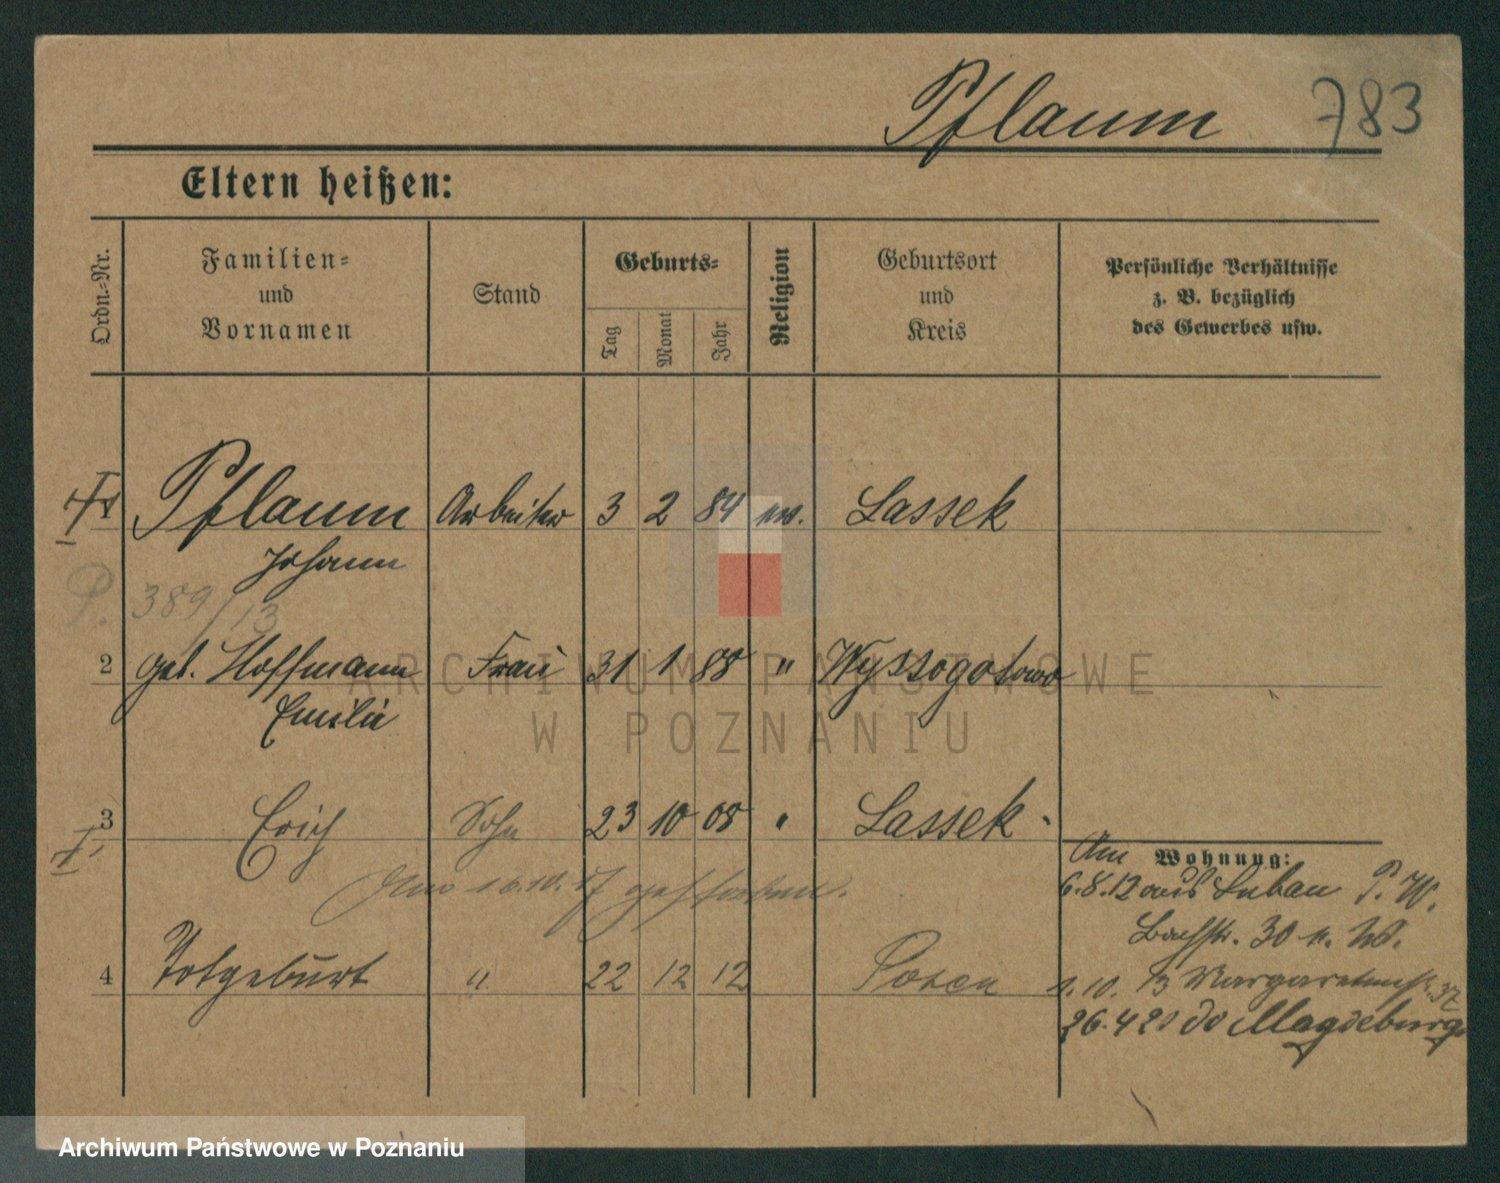 Pflaum 783
Eltern heißen:
Ordn.-Nr.
Familien-
und
Vornamen
Stand
Geburts-
Tag
Monat
Jahr
Religion
Geburtsort
und
Kreis
Persönliche Verhältnisse
z. B. bezüglich
des Gewerbes usw.
1 Pflaum Arbeiter 3 2 84 ev. Lassek
Johann
P. 389/13
2 geb. Hoffmann Frau 31 1 88 " Wyssogotowo
Emilie
3 Erich Sohn 23 10 08 " Lassek
Am 16.10.17 gestorben.
Wohnung:
Am
6.8.12 aus Luban P. W.
Bachstr. 30
4 Totgeburt " 22 12 12 Posen
1.10.13 Margaretenstr. 37
26.4 20 Magdeburg
ARCHIWUM PAŃSTWOWE
W POZNANIU
Archiwum Państwowe w Poznaniu